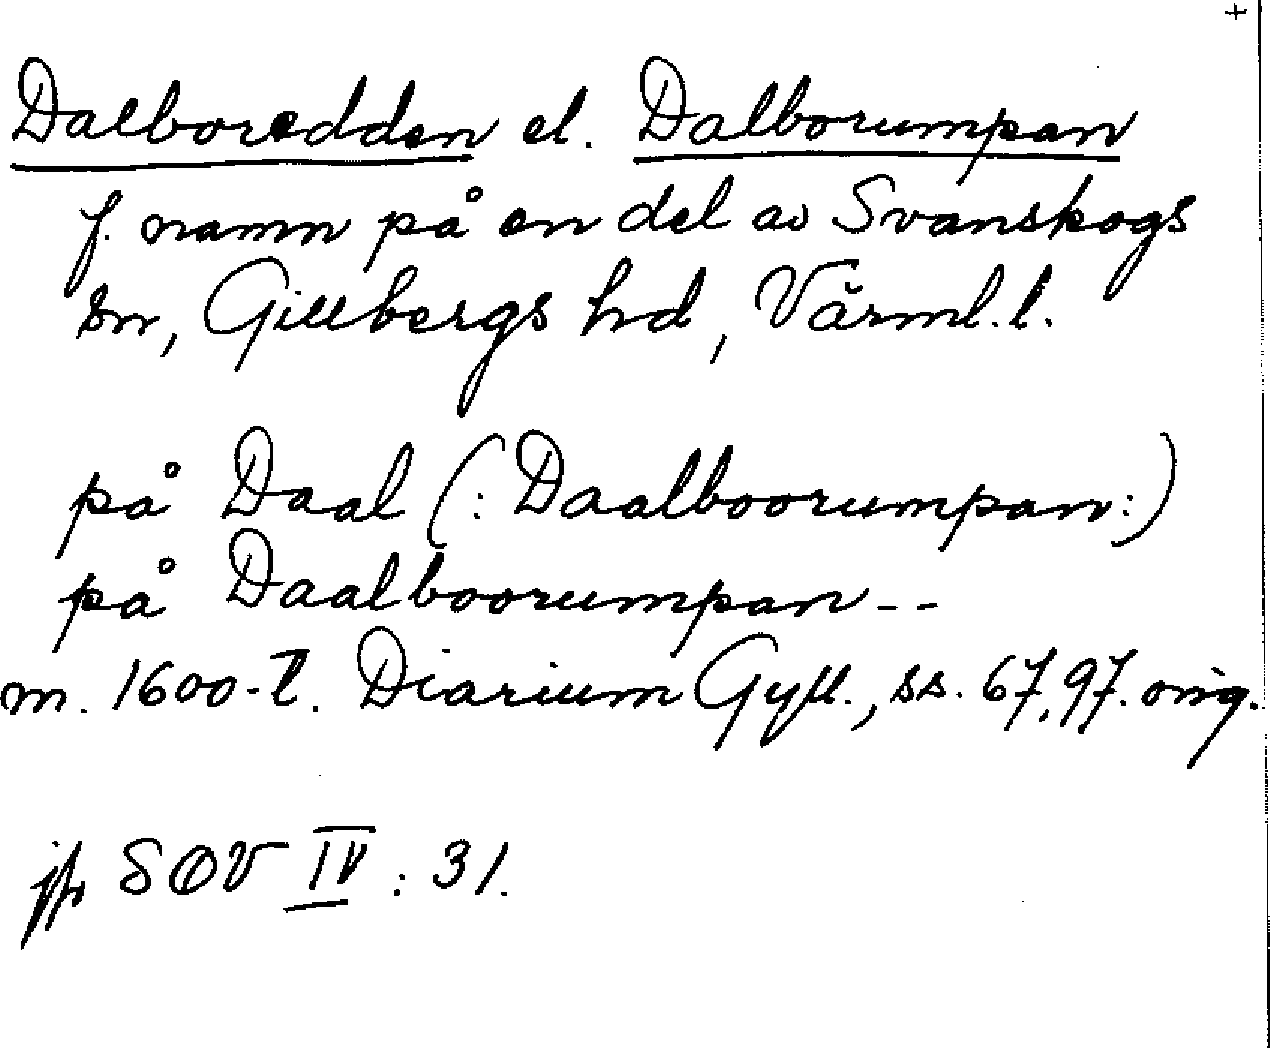 +
Dalboredden el. Dalborumpan
f. namn på en del av Svanskogs
sn, Gillbergs hd, Värml. l.
på Daal (: Daalboorumpan :)
på Daalboorumpan - -
m. 1600-t. Diarium Gyll., ss. 67, 97. orig.
jfr SOV IV : 31.